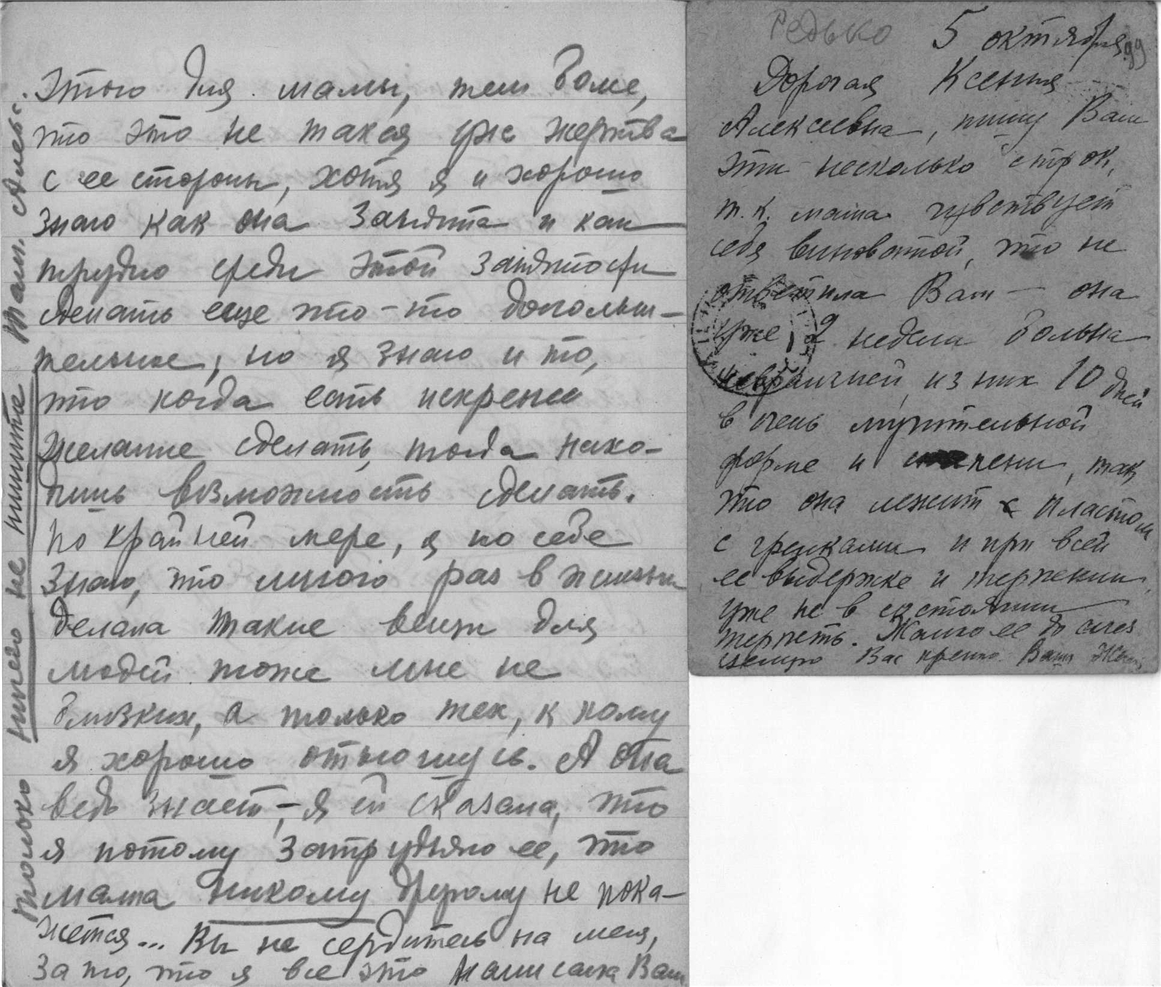 этого для мамы, тем более,
что это не такая уж жертва
с ее стороны, хотя я и хорошо
знаю как она занята и как
трудно среди этой занятости
сделать еще что-то дополни-
тельное, но я знаю и то,
что когда есть искреннее
желание сделать, тогда нахо-
дишь возможность сделать.
По крайней мере, я по себе
знаю, что много раз в жизни
делала такие вещи для
людей тоже мне не
близких, а только тех, к кому
я хорошо отношусь. А она
ведь знает, – я ей сказала, что
я потому затрудняю ее, что
мама никому другому не пока-
жется... Вы не сердитесь на меня,
за то, что я все это написала Вам
только ничего не пишите Тат. Алекс.
Редько 5 октября
99
Дорогая Ксения
Алексеевна, пишу Вам
эти несколько строк,
т.к. мама чувствует
себя виноватой, что не
ответила Вам – она
уже 2 недели больна
невралгией, из них 10 дней
в очень мучительной
форме и степени, так
что она лежит пластом
с грелками и при всей
ее выдержке и терпении
уже не в состоянии
терпеть. Жалко ее до слез
Целую Вас крепко. Ваша